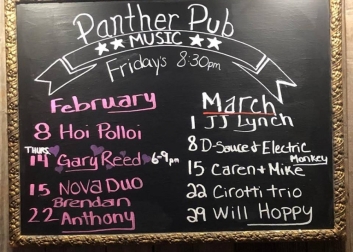 Panther Pub
MUSIC
Friday's 8:30pm
February
8 Hoi Polloi
THURS.
14 Gary Reed 6-9pm
15 NOVA DUO
22 Brendan Anthony
March
1 JJ Lynch
8 D-Sauce & Electric Monkey
15 Caren & Mike
22 Cirotti trio
29 Will Hoppy